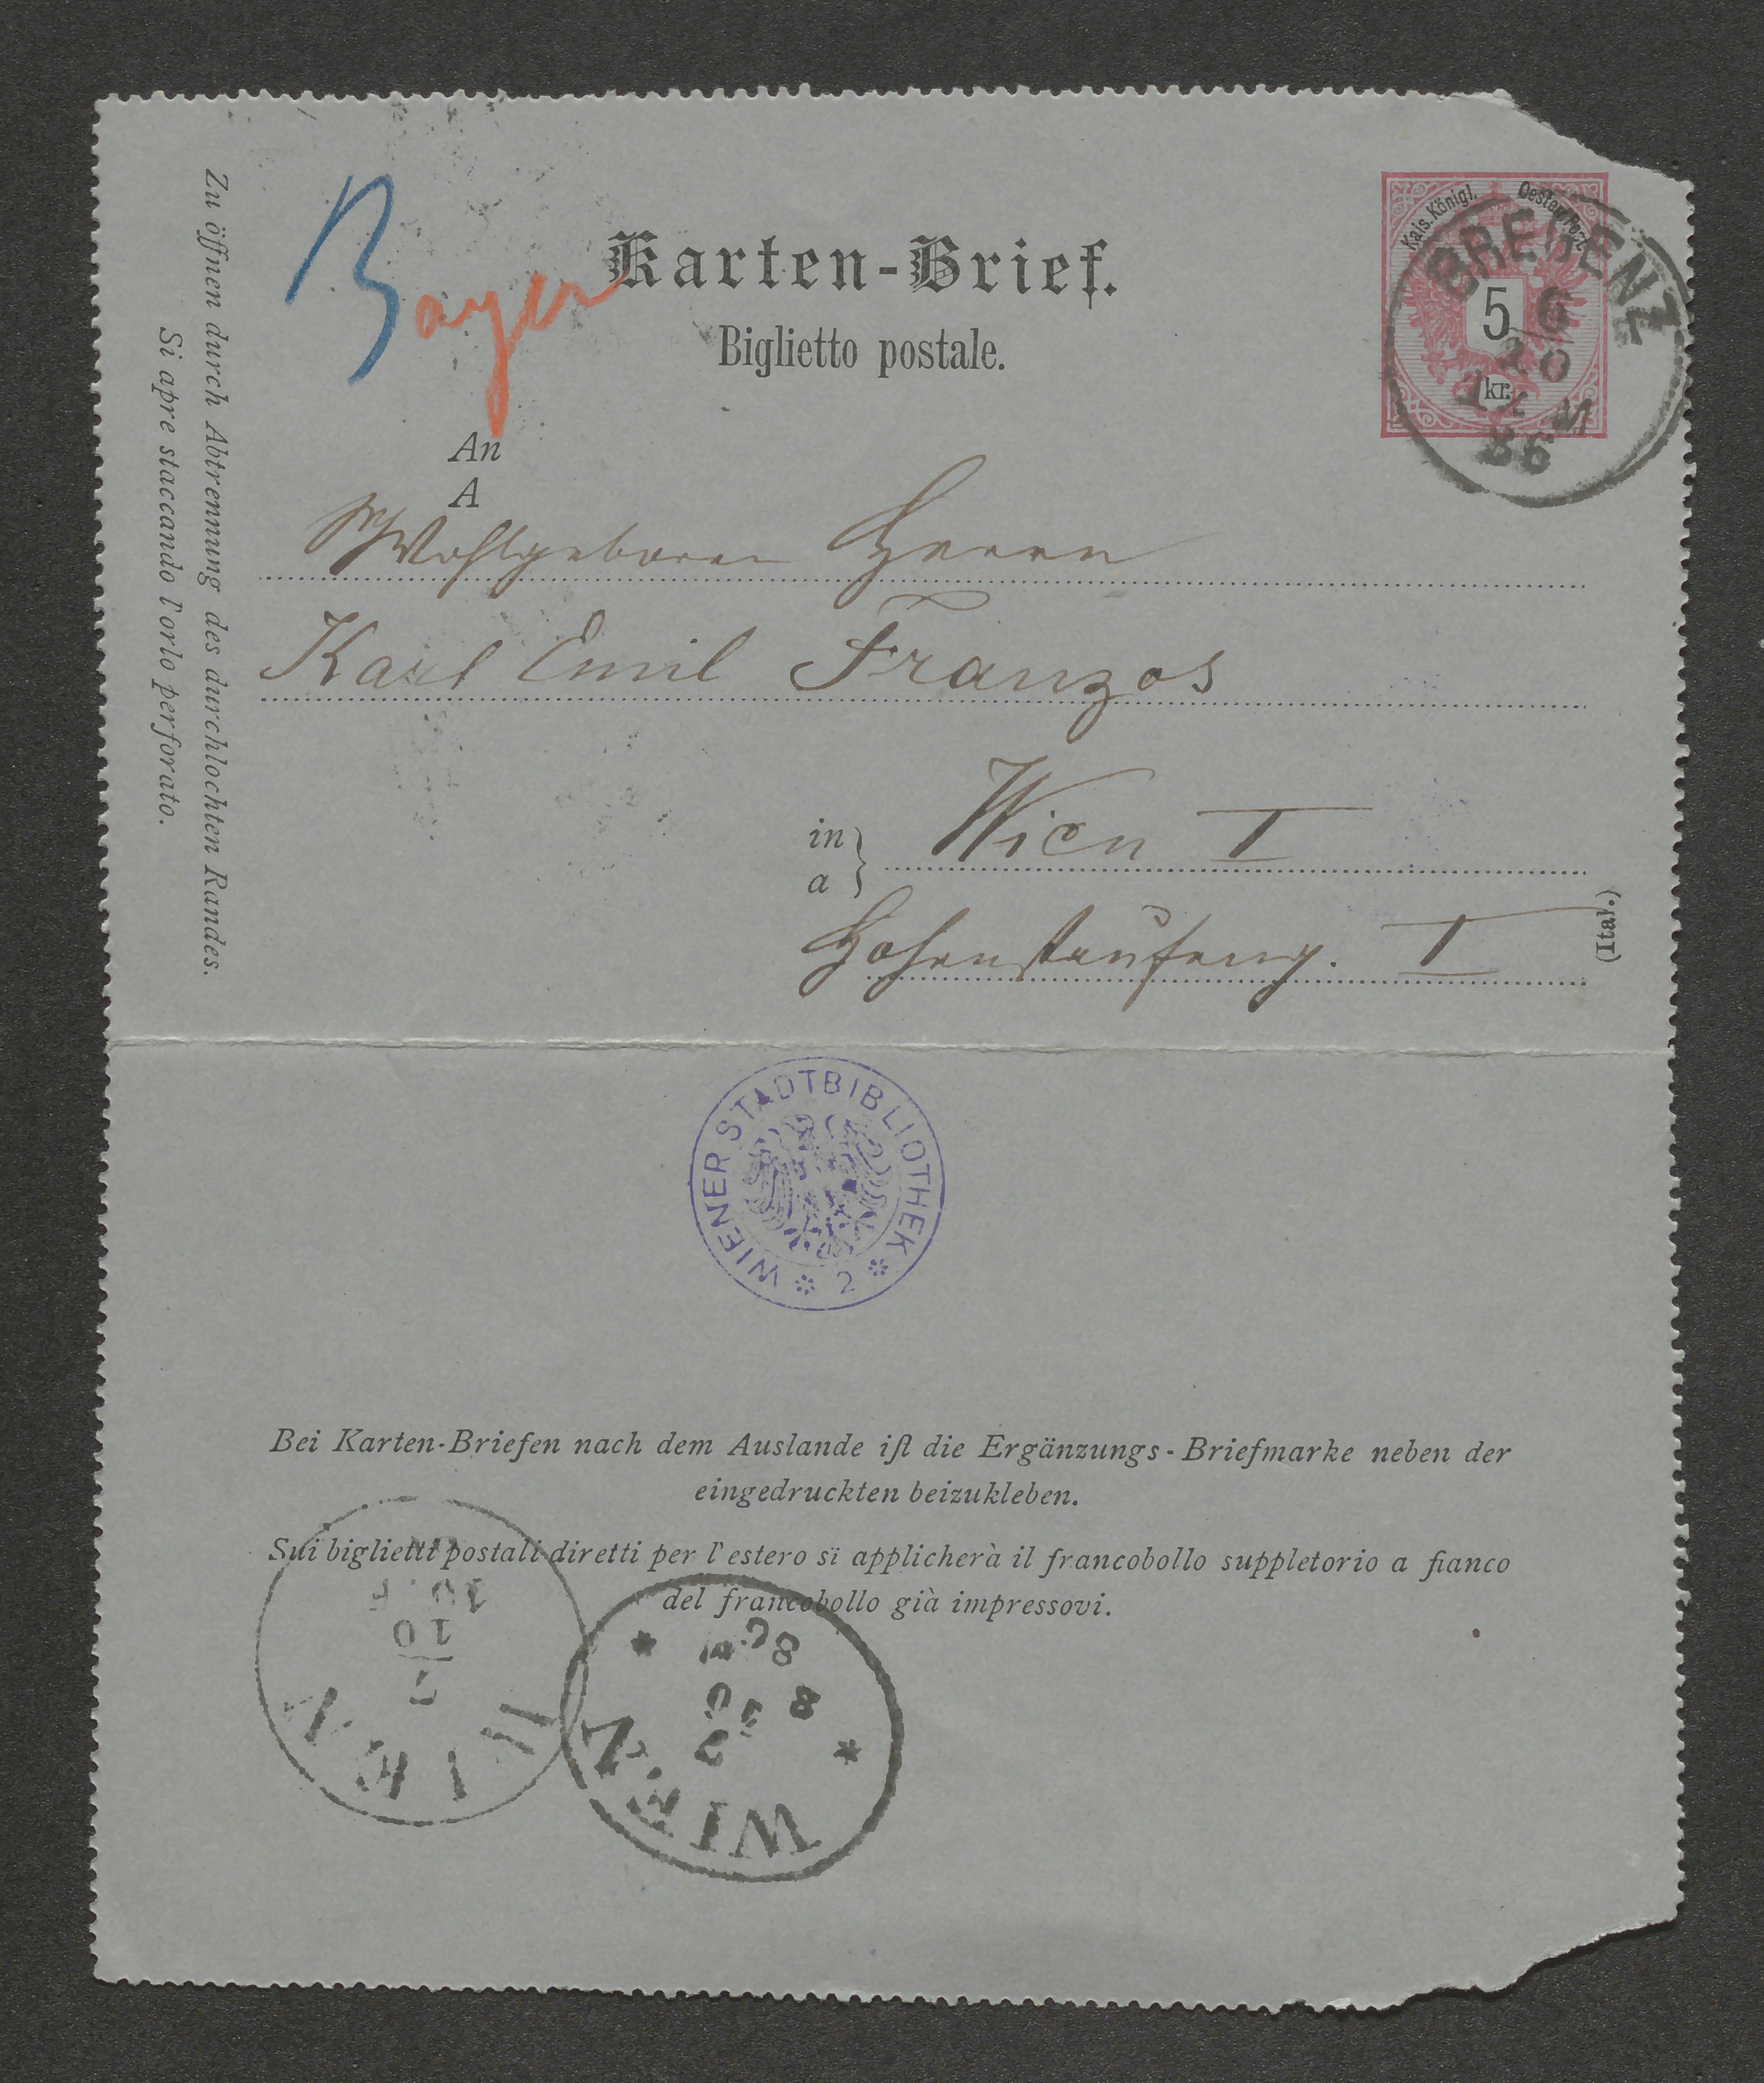 Zu öffnen durch Abtrennung des durchlochten Randes.
Si apre staccando l'orlo perforato.
Bayer
Karten-Brief.
Biglietto postale.
Kais. Königl. Oesterr. Post
5
kr.
BREGENZ
6
10
86
An
A
Wohlgeboren Herrn
Karl Emil Franzos
in
a
Wien I
Hohenstaufeng. I
(Ital.)
WIENER STADTBIBLIOTHEK * 2 *
Bei Karten-Briefen nach dem Auslande iſt die Ergänzungs-Briefmarke neben der
eingedruckten beizukleben.
Sui biglietti postali diretti per l'estero si applicherà il francobollo suppletorio a fianco
del francobollo già impressovi.
WIEN
7
10
WIEN